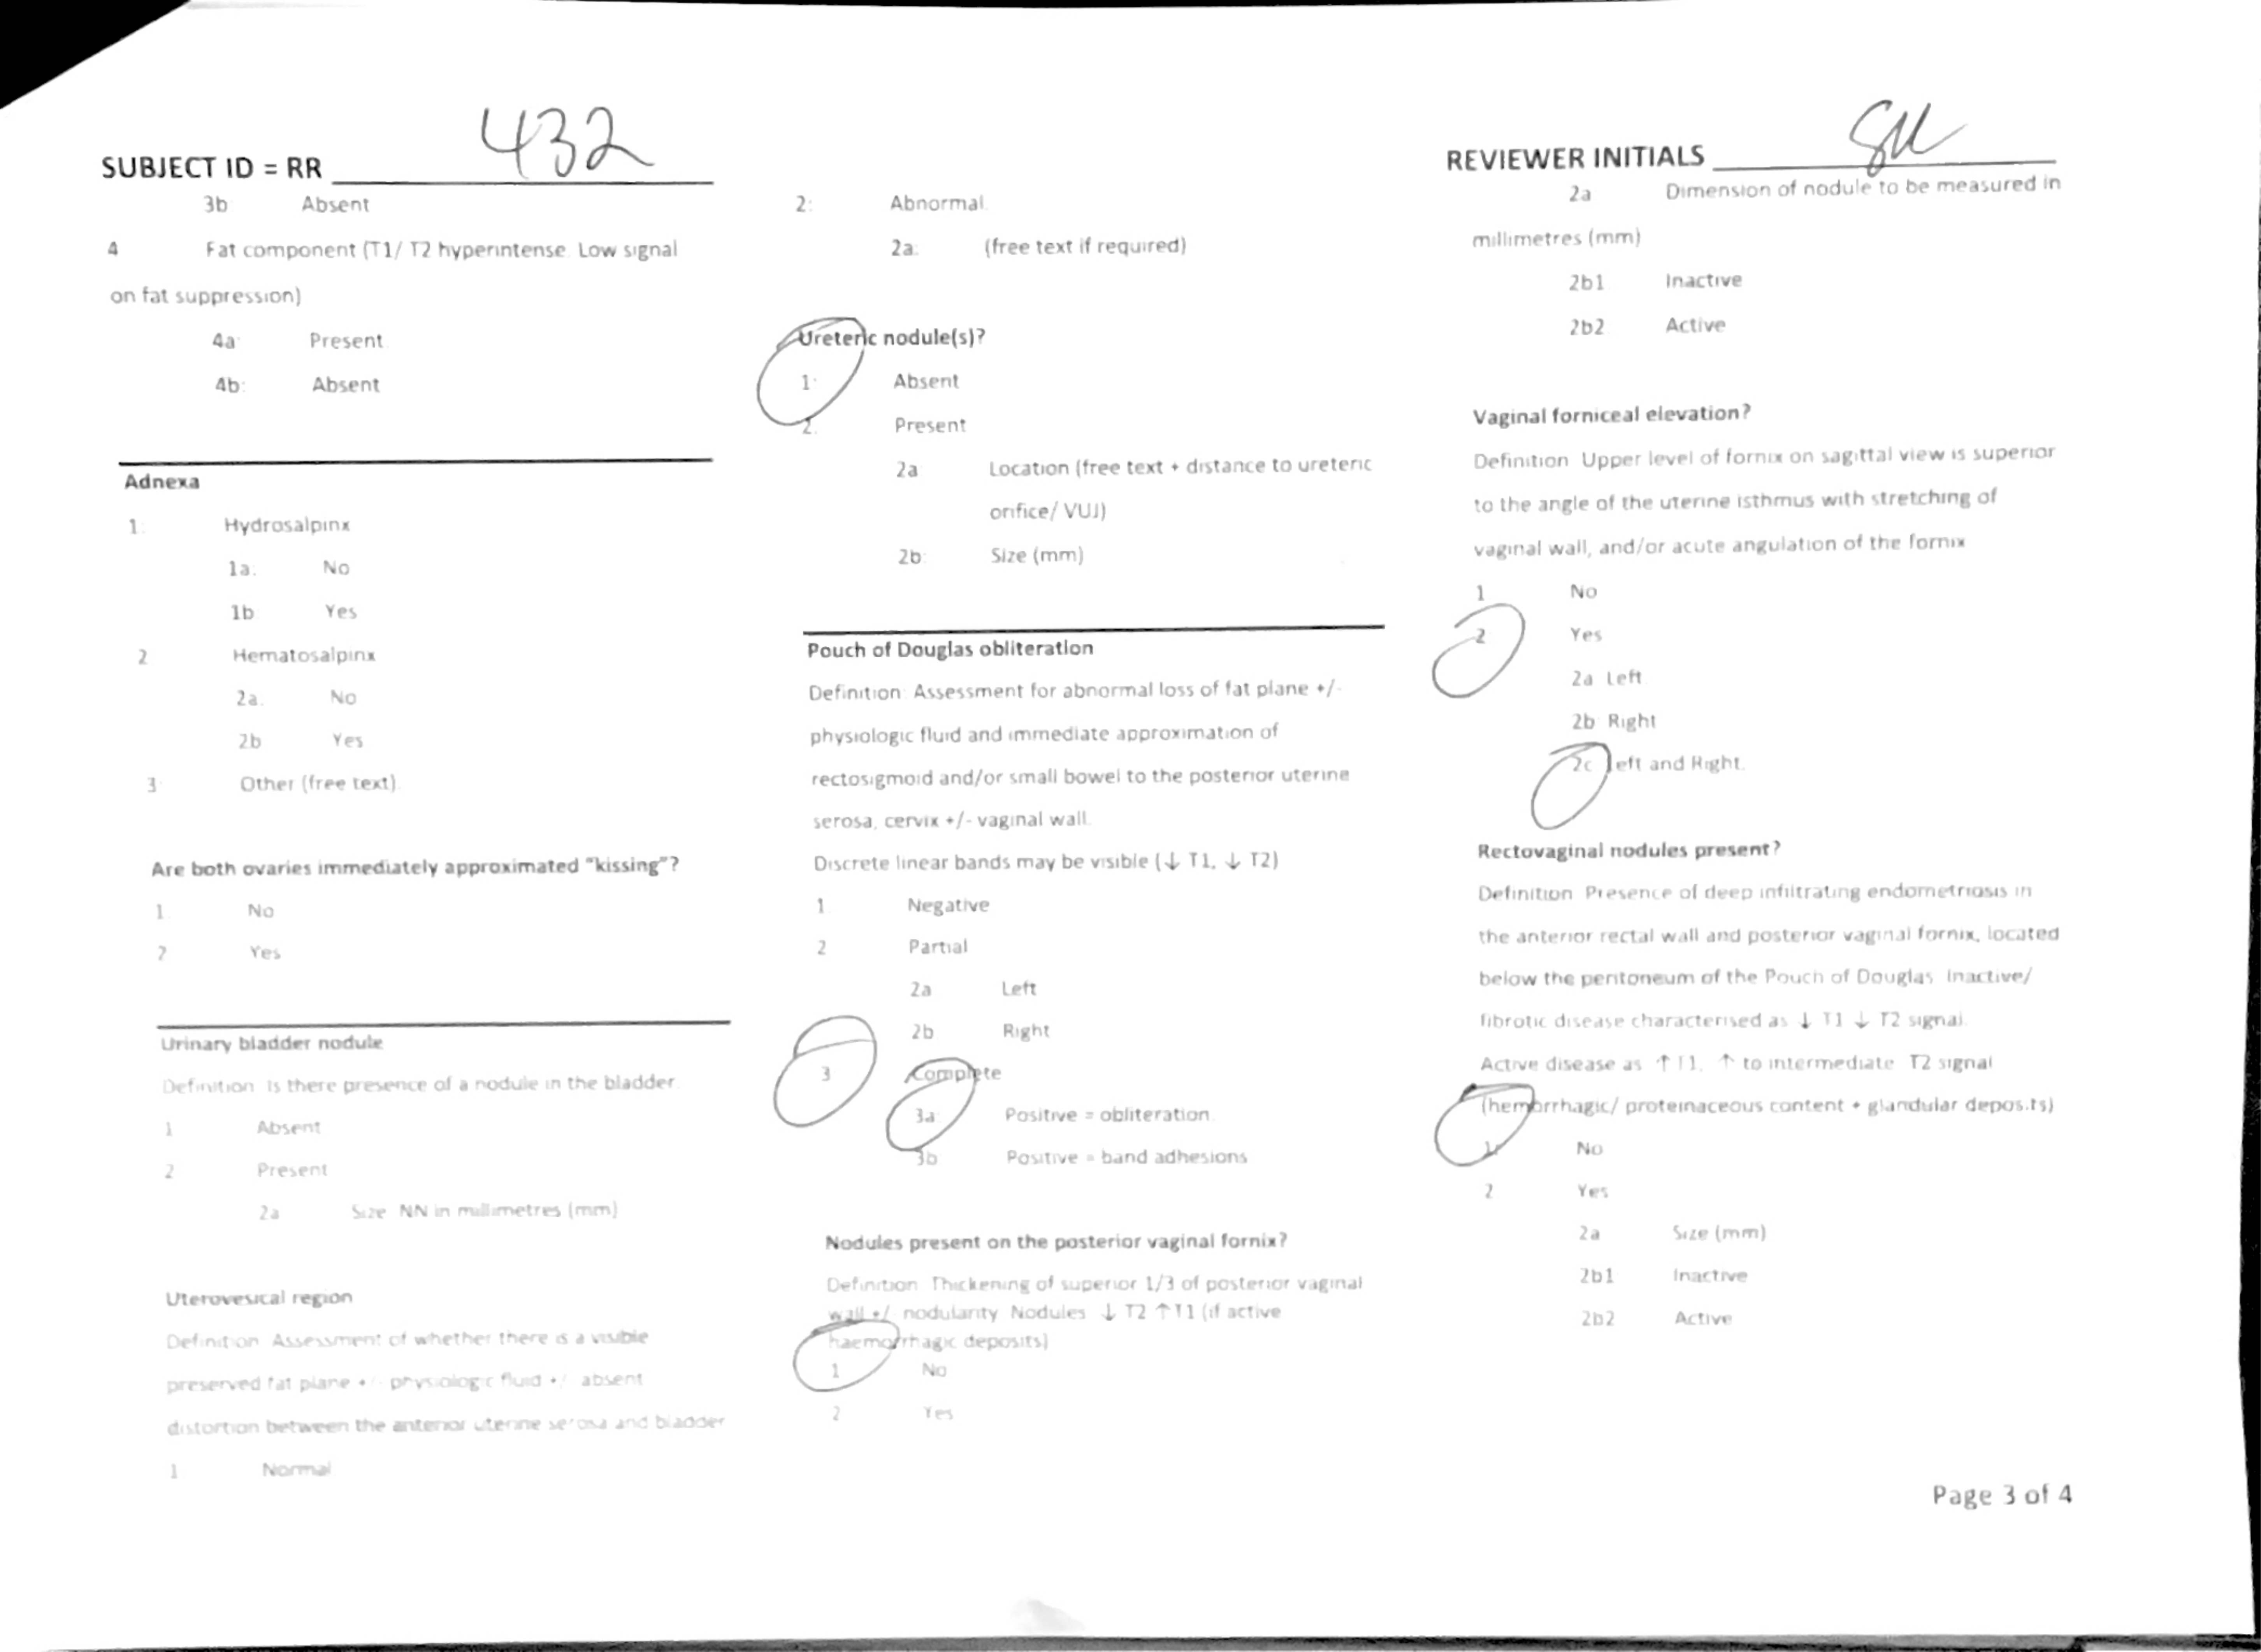 SUBJECT ID = RR 432
3b Absent
4 Fat component (T1/ T2 hyperintense. Low signal
on fat suppression)
4a: Present.
4b: Absent
Adnexa
1. Hydrosalpinx
1a: No
1b Yes
2 Hematosalpinx
2a. No
2b Yes
3: Other (free text).
Are both ovaries immediately approximated "kissing"?
1. No
2 Yes
Urinary bladder nodule
Definition: Is there presence of a nodule in the bladder
1 Absent
2 Present
2a Size NN in millimetres (mm)
Uterovesical region
Definition: Assessment of whether there is a visible
preserved fat plane +/- physiologic fluid +/- absent
distortion between the anterior uterine serosa and bladder
1 Normal
2: Abnormal.
2a: (free text if required)
Ureteric nodule(s)?
1: Absent
2. Present
2a Location (free text + distance to ureteric
orifice/ VUJ)
2b: Size (mm)
Pouch of Douglas obliteration
Definition: Assessment for abnormal loss of fat plane +/-
physiologic fluid and immediate approximation of
rectosigmoid and/or small bowel to the posterior uterine
serosa, cervix +/- vaginal wall.
Discrete linear bands may be visible (↓ T1, ↓ T2)
1 Negative
2 Partial
2a Left
2b Right
3 Complete
3a: Positive = obliteration.
3b Positive = band adhesions
Nodules present on the posterior vaginal fornix?
Definition: Thickening of superior 1/3 of posterior vaginal
wall +/- nodularity Nodules ↓ T2 ↑T1 (if active
haemorrhagic deposits)
1 No
2 Yes
REVIEWER INITIALS
2a Dimension of nodule to be measured in
millimetres (mm)
2b1 Inactive
2b2 Active
Vaginal forniceal elevation?
Definition Upper level of fornix on sagittal view is superior
to the angle of the uterine isthmus with stretching of
vaginal wall, and/or acute angulation of the fornix
1 No
2 Yes
2a Left
2b Right
2c Left and Right.
Rectovaginal nodules present?
Definition Presence of deep infiltrating endometriosis in
the anterior rectal wall and posterior vaginal fornix, located
below the peritoneum of the Pouch of Douglas Inactive/
fibrotic disease characterised as ↓ T1 ↓ T2 signal.
Active disease as ↑ T1, ↑ to intermediate T2 signal
(hemorrhagic/ proteinaceous content + glandular deposits)
1. No
2 Yes
2a Size (mm)
2b1 Inactive
2b2 Active
Page 3 of 4